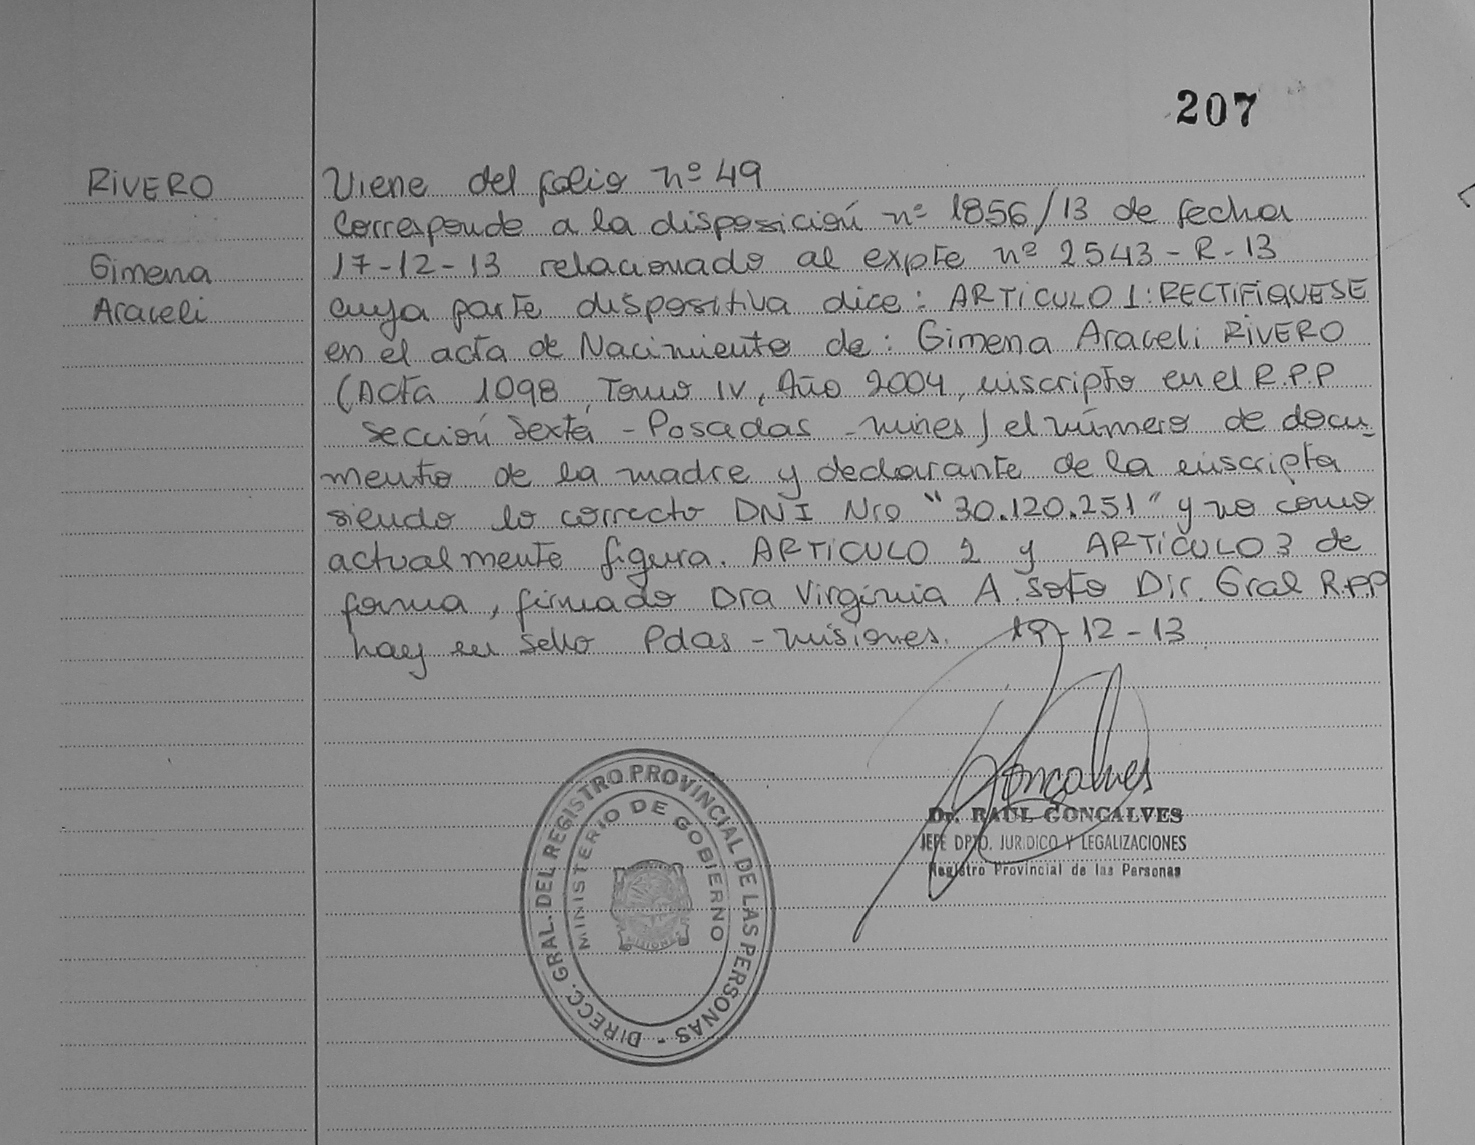 207
RIVERO
Gimena
Araceli
Viene del folio nº 49
Corresponde a la disposición nº 1856/13 de fecha
17-12-13 relacionado al expte nº 2543-R-13
cuya parte dispositiva dice: ARTICULO 1: RECTIFIQUESE
en el acta de Nacimiento de: Gimena Araceli RIVERO
(Acta 1098, Tomo IV, Año 2004, inscripto en el R.P.P
sección Sexta - Posadas - mnes) el número de docu-
mento de la madre y declarante de la inscripta
siendo lo correcto DNI Nro "30.120.251" y no como
actualmente figura. ARTICULO 2 y ARTICULO 3 de
forma, firmado Dra Virginia A. Soto Dir. Gral R.P.P
hay un sello Pdas - misiones. 19-12-13
Goncalves
Dr. RAUL GONCALVES
JEFE DPTO. JURIDICO Y LEGALIZACIONES
Registro Provincial de las Personas
DIRECC. GRAL. DEL REGISTRO PROVINCIAL DE LAS PERSONAS -
MINISTERIO DE GOBIERNO
MISIONES